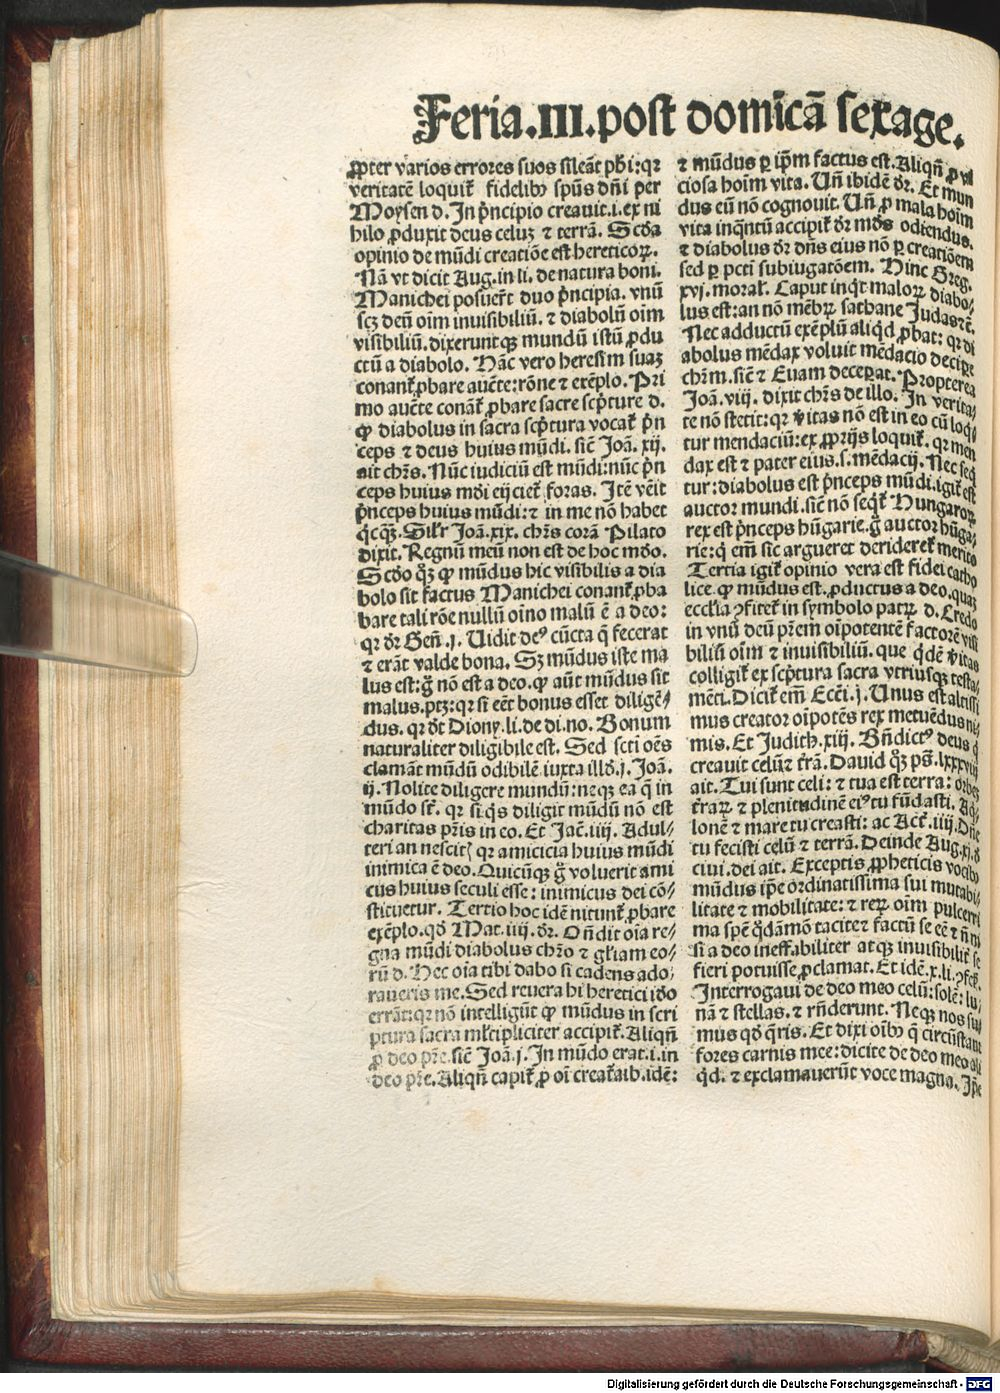 Feria.III.post domīcā sexage.
ꝓpter varios errores suos sileāt pħi:qꝛ
veritatē loquiť fidelibꝰ spūs dñi per
Moysen d. In pͥncipio creauit.i.ex ni
hilo ꝓduxit deus celuꝫ ⁊ terrā. Scďa
opinio de mūdi creatiōe est hereticoꝝ.
Nā vt dicit Aug.in li.de natura boni.
Manichei posuerūt duo pͥncipia. vnū
scꝫ deū oīm inuisibiliū.⁊ diabolū oīm
visibiliū.dixeruntqꝫ mundū istū ꝓdu
ctū a diabolo. Hāc vero heresim suaꝫ
conanť ꝓbare aucte:rōne ⁊ exēplo. Pri
mo aucte conanť ꝓbare sacre scpͥture d.
ꝙ diabolus in sacra scpͥtura vocať pͥn
ceps ⁊ deus huius mūdi. sic̄ Joā. xij.
ait chr̄s. Nūc iudiciū est mūdi:nūc pͥn
ceps huius mōi eijcieť foras. Itē vēit
pͥnceps huius mūdi:⁊ in me nō habet
qͥcqͣꝫ. Silʳr Joā.xix. chr̄s corā Pilato
dixit. Regnū meū non est de hoc mōdo.
Scďo qͦꝫ ꝙ mūdus hic visibilis a dia
bolo sit factus Manichei conanť ꝓba
bare tali rōe nullū oīno malū ē a deo:
qꝛ dr̄ Geñ.j. Uidit deꝰ cūcta q̄ fecerat
⁊ erāt valde bona. Sꝫ mūdus iste ma
lus est:g̊ nō est a deo. ꝙ aūt mūdus sit
malus.ptꝫ:qꝛ si eēt bonus esset diligē⸗
dus. qꝛ dt̄ Diony.li.de di.no. Bonum
naturaliter diligibile est. Sed scti oēs
clamāt mūdū odibilē iuxta illď.j. Joā.
ij. Nolite diligere mundū:neqꝫ ea q̄ in
mūdo st̄. qꝛ si qͥs diligit mūdū nō est
charitas pr̄is in eo. Et Jac̄.iiij. Adul⸗
teri an nescitꝭ qꝛ amicicia huius mūdi
inimica ē deo. Quicūqꝫ g̊ voluerit ami
cus huius seculi esse: inimicus dei cō⸗
stituetur. Tertio hoc idē nitunť ꝓbare
exēplo.qď Mat.iiij.dr̄. Oñdit oīa re⸗
gna mūdi diabolus chr̄o ⁊ gl̄iam eo⸗
rū d. Hec oīa tibi dabo si cadens ado⸗
raueris me. Sed reuera hi heretici iďo
errāt:qꝛ nō intelligūt ꝙ mūdus in scri
ptura sacra ml̄tipliciter accipiť. Aliqñ
ꝓ deo pr̄e. sic̄ Joā.j. In mūdo erat.i.in
deo pr̄e. Aliqñ capiť ꝓ oī creat̄a ib.idē:
⁊ mūdus ꝑ ip̄m factus est. Aliqñ ꝓ vi
ciosa hoīm vita. Uñ ibidē dr̄. Et mun
dus eū nō cognouit. Uñ ꝓ mala hoīm
vita inqͣntū accipiť dr̄ mōs odiendus.
⁊ diabolus dr̄ dñs eius nō ꝑ creatiōem
sed ꝑ pctī subiugatōem. Hinc Greg.
xvj. moral̄. Caput inqͥt maloꝝ diabo⸗
lus est:an nō mēbꝝ sathane Judas ⁊c̄.
Nec adductū exēplū aliqͥd ꝓbat: qꝛ di
abolus mēdax voluit mēdacio decipe
chr̄m.sic̄ ⁊ Euam deceꝑat. Propterea
Joā. viij. dixit chr̄s de illo. In verita⸗
te nō stetit:qꝛ vͥitas nō est in eo cū loqͥ⸗
tur mendaciū:ex ꝓprijs loquiť. qꝛ men
dax est ⁊ pater eius.s.mēdacij. Nec seq̄
tur:diabolus est pͥnceps mūdi.igiť est
auctor mundi. sic̄ nō seqͥť Hungaroꝝ
rex est pͥnceps hūgarie.g̊ auctor hūga⸗
rie:q̄ em̄ sic argueret derideret̄ merito
Tertia igiť opinio vera est fidei catho
lice. ꝙ mūdus est.ꝓductus a deo.quaꝫ
eccl̄ia ꝯfiteť in symbolo patꝝ d. Credo
in vnū deū pr̄em oīpotentē factorē visi
biliū oīm ⁊ inuisibiliū. que qͥdē vͥitas
colligiť ex scpͥtura sacra vtriusqꝫ testa⸗
mēti. Diciť em̄ Ecci.j. Unus est altissi
mus creator oīpotēs rex metuēdus ni⸗
mis. Et Judith.xiij. Bñdictꝰ deus q̄
creauit celū⁊ t̄rā. Dauid qͦꝫ ps̄.lxxxviij
ait. Tui sunt celi: ⁊ tua est terra: orbeꝫ
t̄raꝝ ⁊ plenitudinē eiꝰ tu fūdasti. Aq̄⸗
lonē ⁊ mare tu creasti: ac Act̄.iiij. Dñe
tu fecisti celū ⁊ terrā. Deinde Aug.xj.d̄
ciui.dei ait. Exceptis ꝓpheticis vocibꝰ
mūdus ip̄e ordinatissima sui mutabi⸗
litate ⁊ mobilitate: ⁊ reꝝ oīm pulcerri
ma spē qͦdāmō tacite⁊ factū se eē ⁊ ñ nͥ
si a deo ineffabiliter atqꝫ inuisibiliť se
fieri potuisse ꝓclamat. Et idē.x.li.ꝯfeꝭ.
Interrogaui de deo meo celū:solē: lu⸗
nā ⁊ stellas.⁊ rñderunt. Neqꝫ nos su⸗
mus qď qͥris. Et dixi oībꝰ q̄ circūstant
fores carnis mee:dicite de deo meo ali
qͥd. ⁊ exclamauerūt voce magna. Ip̄e
Digitalisierung gefördert durch die Deutsche Forschungsgemeinschaft - DFG